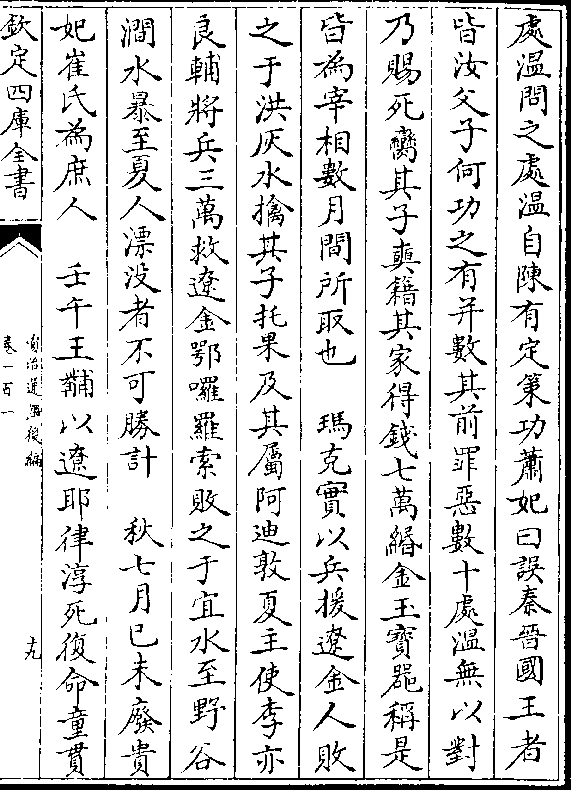 處温問之處温自陳有定策功蕭妃曰誤秦晉國王者
皆汝父子何功之有并數其前罪惡數十處温無以對
乃賜死臠其子奭籍其家得錢七萬緡金玉寶器稱是
皆為宰相數月間所取也　瑪克實以兵援遼金人敗
之于洪灰水擒其子托果及其屬阿迪敦夏主使李亦
良輔將兵三萬救遼金鄂囉羅索敗之于宜水至野谷
澗水暴至夏人漂沒者不可勝計　秋七月已未廢貴
妃崔氏為庶人　壬午王黼以遼耶律淳死復命童貫
欽定四庫全書
資治通鑑後編
卷一百一
十九